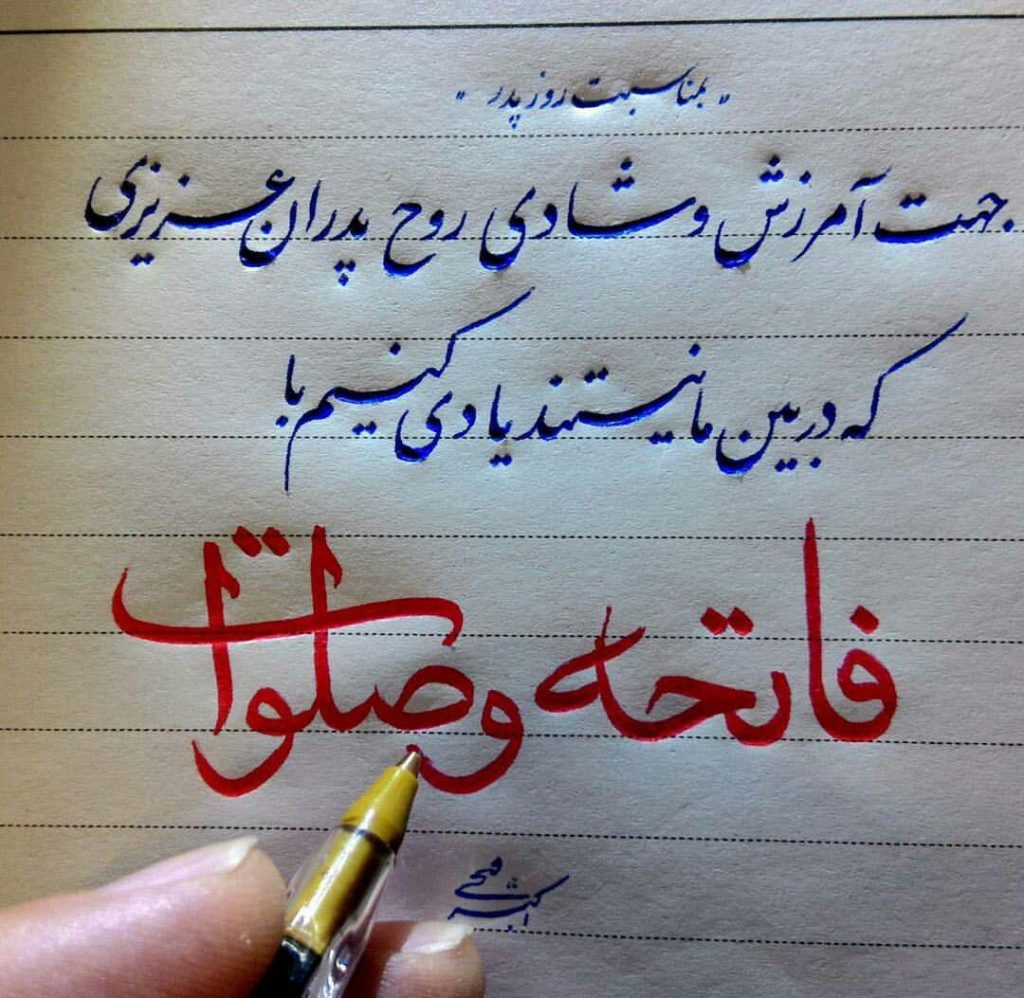 " بمناسبت روز پدر "
جهت آمرزش و شادی روح پدران عزیزی
که در بین ما نیستند یادی کنیم با
فاتحه و صلوات